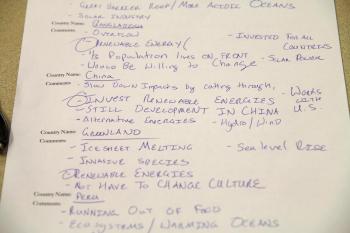 - GREAT BARRIER REEF / MORE ACIDIC OCEANS
- SOLAR INDUSTRY
Country Name: BANGLADESH
Comments - OVERFLOW - INVESTED FOR ALL COUNTRIES
- RENEWABLE ENERGY (
- 1/2 POPULATION LIVES ON FRONT - SOLAR POWER
- WOULD BE WILLING TO CHANGE
Country Name: China
Comments - SLOW DOWN IMPACTS BY COTING THROUGH, - WORKS WITH U.S.
- INVEST RENEWABLE ENERGIES
- STILL DEVELOPMENT IN CHINA
- ALTERNATIVE ENERGIES - HYDRO/WIND
Country Name: GREENLAND
Comments - ICE SHEET MELTING - Sea level RISE
- INVASIVE SPECIES
- RENEWABLE ENERGIES
- NOT HAVE TO CHANGE CULTURE
Country Name: PERU
Comments
- RUNNING OUT OF FOOD
- ECOSYSTEMS / WARMING OCEANS